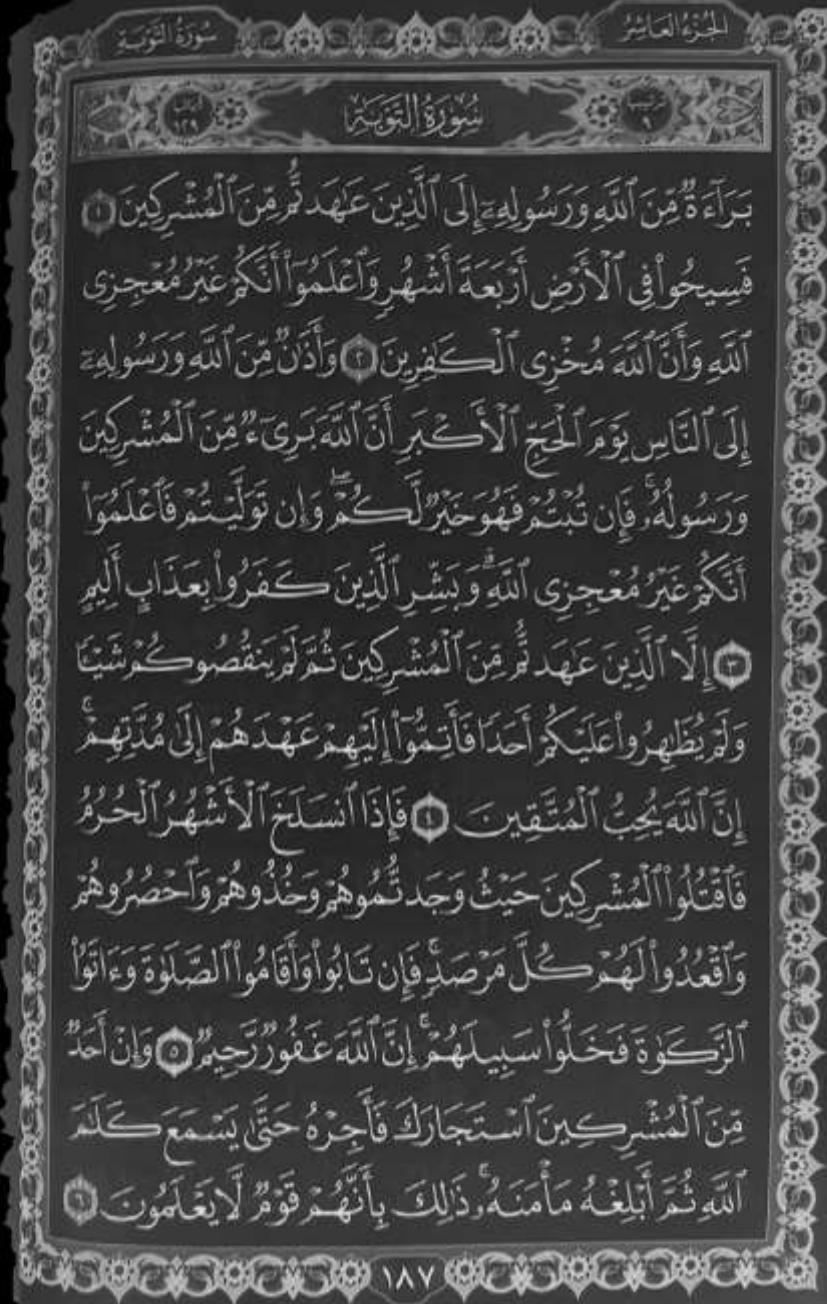 الجُزْءُ العَاشِرُ سُورَةُ التَّوْبَةِ
تَرْتِيبُهَا ٩ سُورَةُ التَّوْبَةِ آيَاتُهَا ١٢٩
بَرَآءَةٌ مِّنَ ٱللَّهِ وَرَسُولِهِۦٓ إِلَى ٱلَّذِينَ عَٰهَدتُّم مِّنَ ٱلْمُشْرِكِينَ ١
فَسِيحُوا۟ فِى ٱلْأَرْضِ أَرْبَعَةَ أَشْهُرٍ وَٱعْلَمُوٓا۟ أَنَّكُمْ غَيْرُ مُعْجِزِى
ٱللَّهِ وَأَنَّ ٱللَّهَ مُخْزِى ٱلْكَٰفِرِينَ ٢ وَأَذَٰنٌ مِّنَ ٱللَّهِ وَرَسُولِهِۦٓ
إِلَى ٱلنَّاسِ يَوْمَ ٱلْحَجِّ ٱلْأَكْبَرِ أَنَّ ٱللَّهَ بَرِىٓءٌ مِّنَ ٱلْمُشْرِكِينَ
وَرَسُولُهُۥ ۚ فَإِن تُبْتُمْ فَهُوَ خَيْرٌ لَّكُمْ ۖ وَإِن تَوَلَّيْتُمْ فَٱعْلَمُوٓا۟
أَنَّكُمْ غَيْرُ مُعْجِزِى ٱللَّهِ ۗ وَبَشِّرِ ٱلَّذِينَ كَفَرُوا۟ بِعَذَابٍ أَلِيمٍ
٣ إِلَّا ٱلَّذِينَ عَٰهَدتُّم مِّنَ ٱلْمُشْرِكِينَ ثُمَّ لَمْ يَنقُصُوكُمْ شَيْـًٔا
وَلَمْ يُظَٰهِرُوا۟ عَلَيْكُمْ أَحَدًا فَأَتِمُّوٓا۟ إِلَيْهِمْ عَهْدَهُمْ إِلَىٰ مُدَّتِهِمْ ۚ
إِنَّ ٱللَّهَ يُحِبُّ ٱلْمُتَّقِينَ ٤ فَإِذَا ٱنسَلَخَ ٱلْأَشْهُرُ ٱلْحُرُمُ
فَٱقْتُلُوا۟ ٱلْمُشْرِكِينَ حَيْثُ وَجَدتُّمُوهُمْ وَخُذُوهُمْ وَٱحْصُرُوهُمْ
وَٱقْعُدُوا۟ لَهُمْ كُلَّ مَرْصَدٍ ۚ فَإِن تَابُوا۟ وَأَقَامُوا۟ ٱلصَّلَوٰةَ وَءَاتَوُا۟
ٱلزَّكَوٰةَ فَخَلُّوا۟ سَبِيلَهُمْ ۚ إِنَّ ٱللَّهَ غَفُورٌ رَّحِيمٌ ٥ وَإِنْ أَحَدٌ
مِّنَ ٱلْمُشْرِكِينَ ٱسْتَجَارَكَ فَأَجِرْهُ حَتَّىٰ يَسْمَعَ كَلَٰمَ
ٱللَّهِ ثُمَّ أَبْلِغْهُ مَأْمَنَهُۥ ۚ ذَٰلِكَ بِأَنَّهُمْ قَوْمٌ لَّا يَعْلَمُونَ ٦
١٨٧